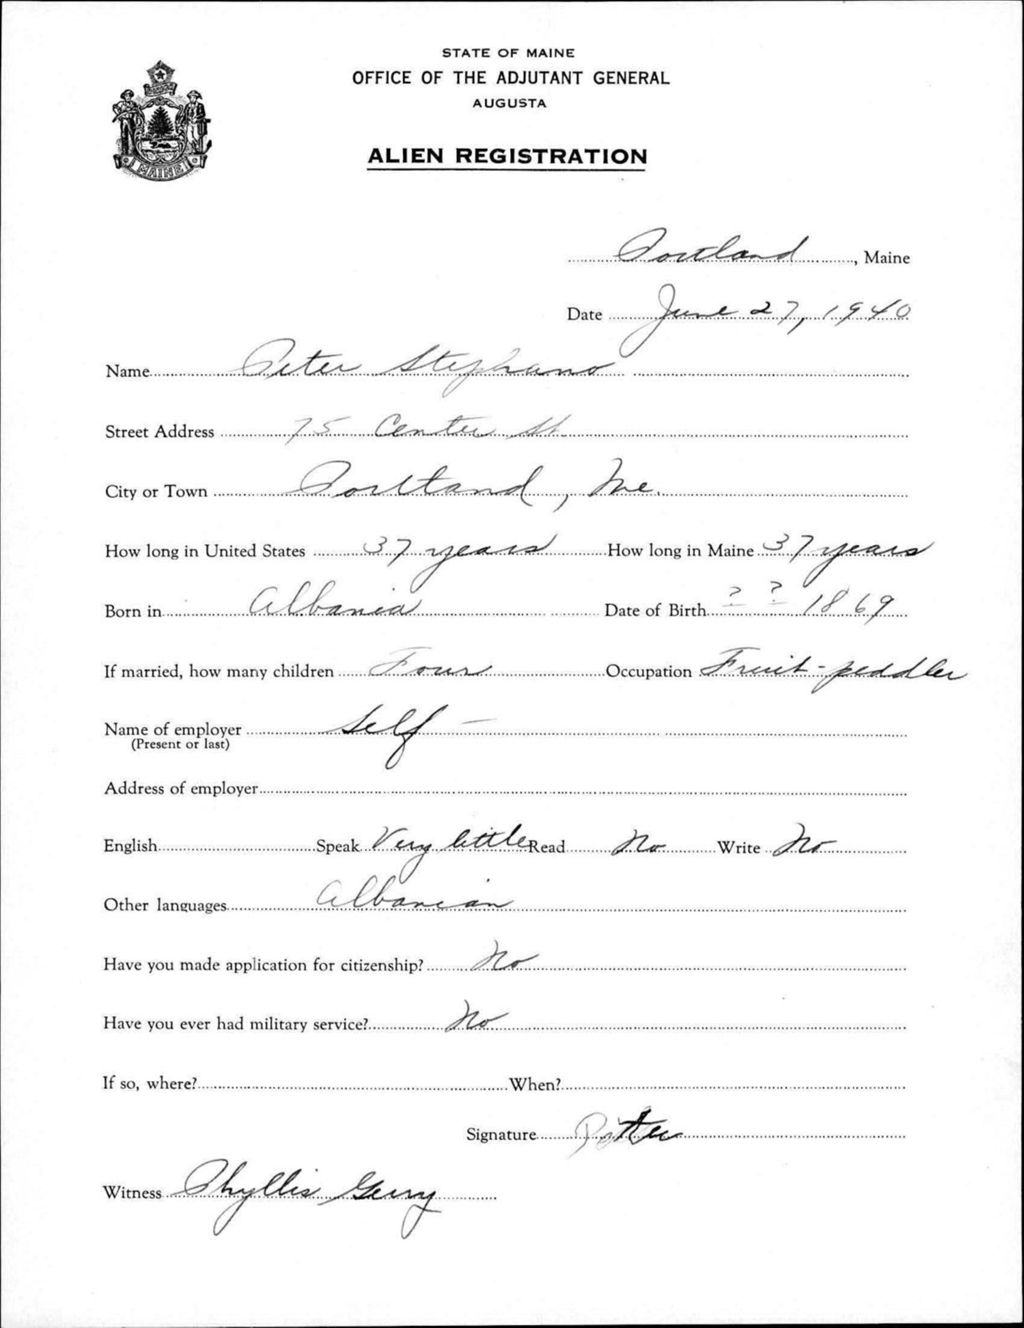 STATE OF MAINE
OFFICE OF THE ADJUTANT GENERAL
AUGUSTA
MAINE
ALIEN REGISTRATION
Portland, Maine
Date June 27, 1940
Name Peter Stephano
Street Address 75 Center St.
City or Town Portland, Me.
How long in United States 37 years How long in Maine 37 years
Born in Albania Date of Birth ? ? 1869
If married, how many children Four Occupation Fruit-peddler
Name of employer Self -
(Present or last)
Address of employer
English Speak Very little Read No Write No
Other languages Albanian
Have you made application for citizenship? No
Have you ever had military service? No
If so, where? When?
Signature
Witness Phyllis Gerry